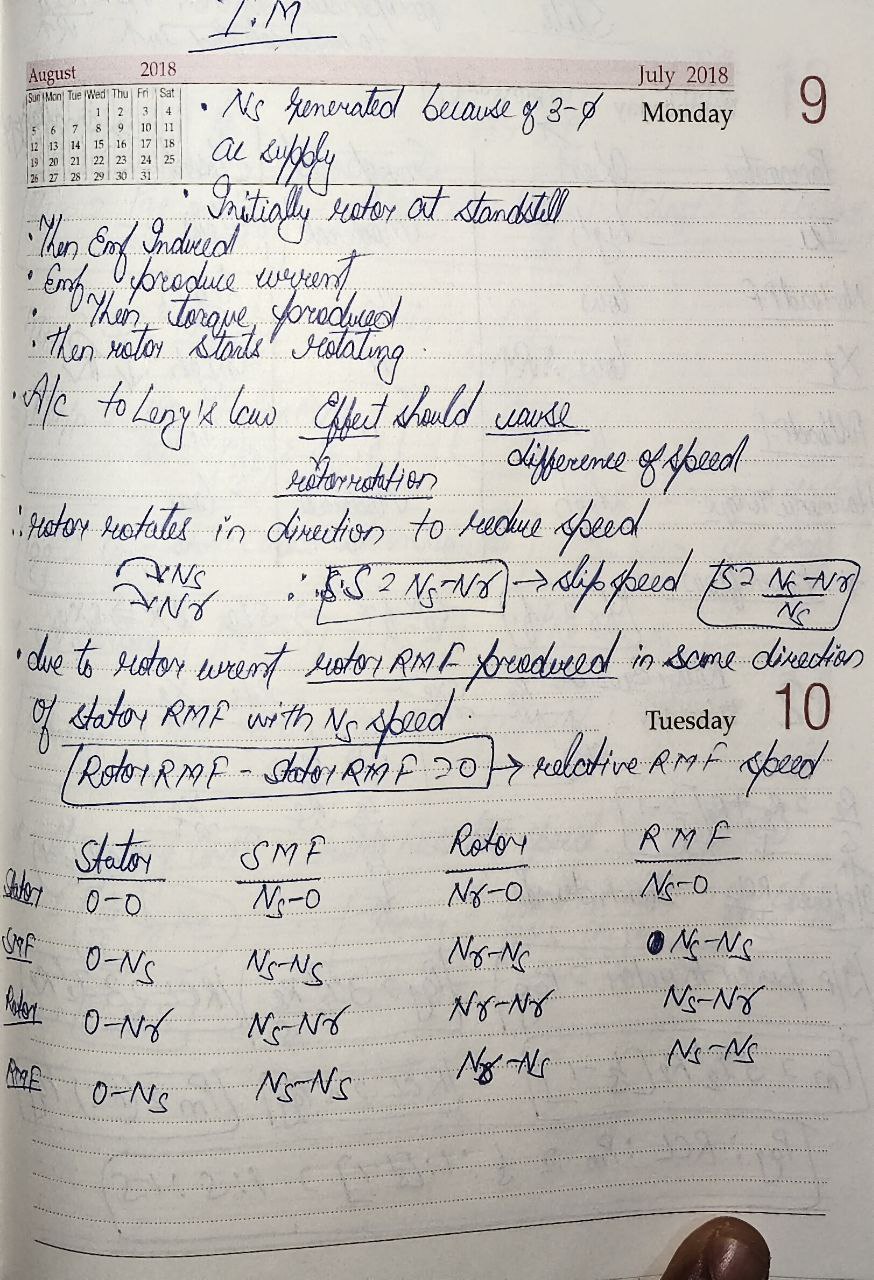 I.M
August 2018 July 2018
Sun Mon Tue Wed Thu Fri Sat
1 2 3 4
5 6 7 8 9 10 11
12 13 14 15 16 17 18
19 20 21 22 23 24 25
26 27 28 29 30 31
Monday 9
• Ns generated because of 3-φ
ac supply
• Initially rotor at standstill
• Then Emf Induced
• Emf produce current
• Then torque produced
• then rotor starts rotating.
• A/c to Lenz's law Effect should cause
rotor rotation difference of speed
∴ rotor rotates in direction to reduce speed
Ns
Nr
∴ S = Ns-Nr → slip speed S = Ns-Nr / Ns
• due to rotor current rotor RMF produced in same direction
of stator RMF with Ns speed.
Tuesday 10
Rotor RMF - Stator RMF = 0 → relative RMF speed
Stator SMF Rotor RMF
Stator 0-0 Ns-0 Nr-0 Ns-0
SMF 0-Ns Ns-Ns Nr-Ns Ns-Ns
Rotor 0-Nr Ns-Nr Nr-Nr Ns-Nr
RMF 0-Ns Ns-Ns Nr-Ns Ns-Ns